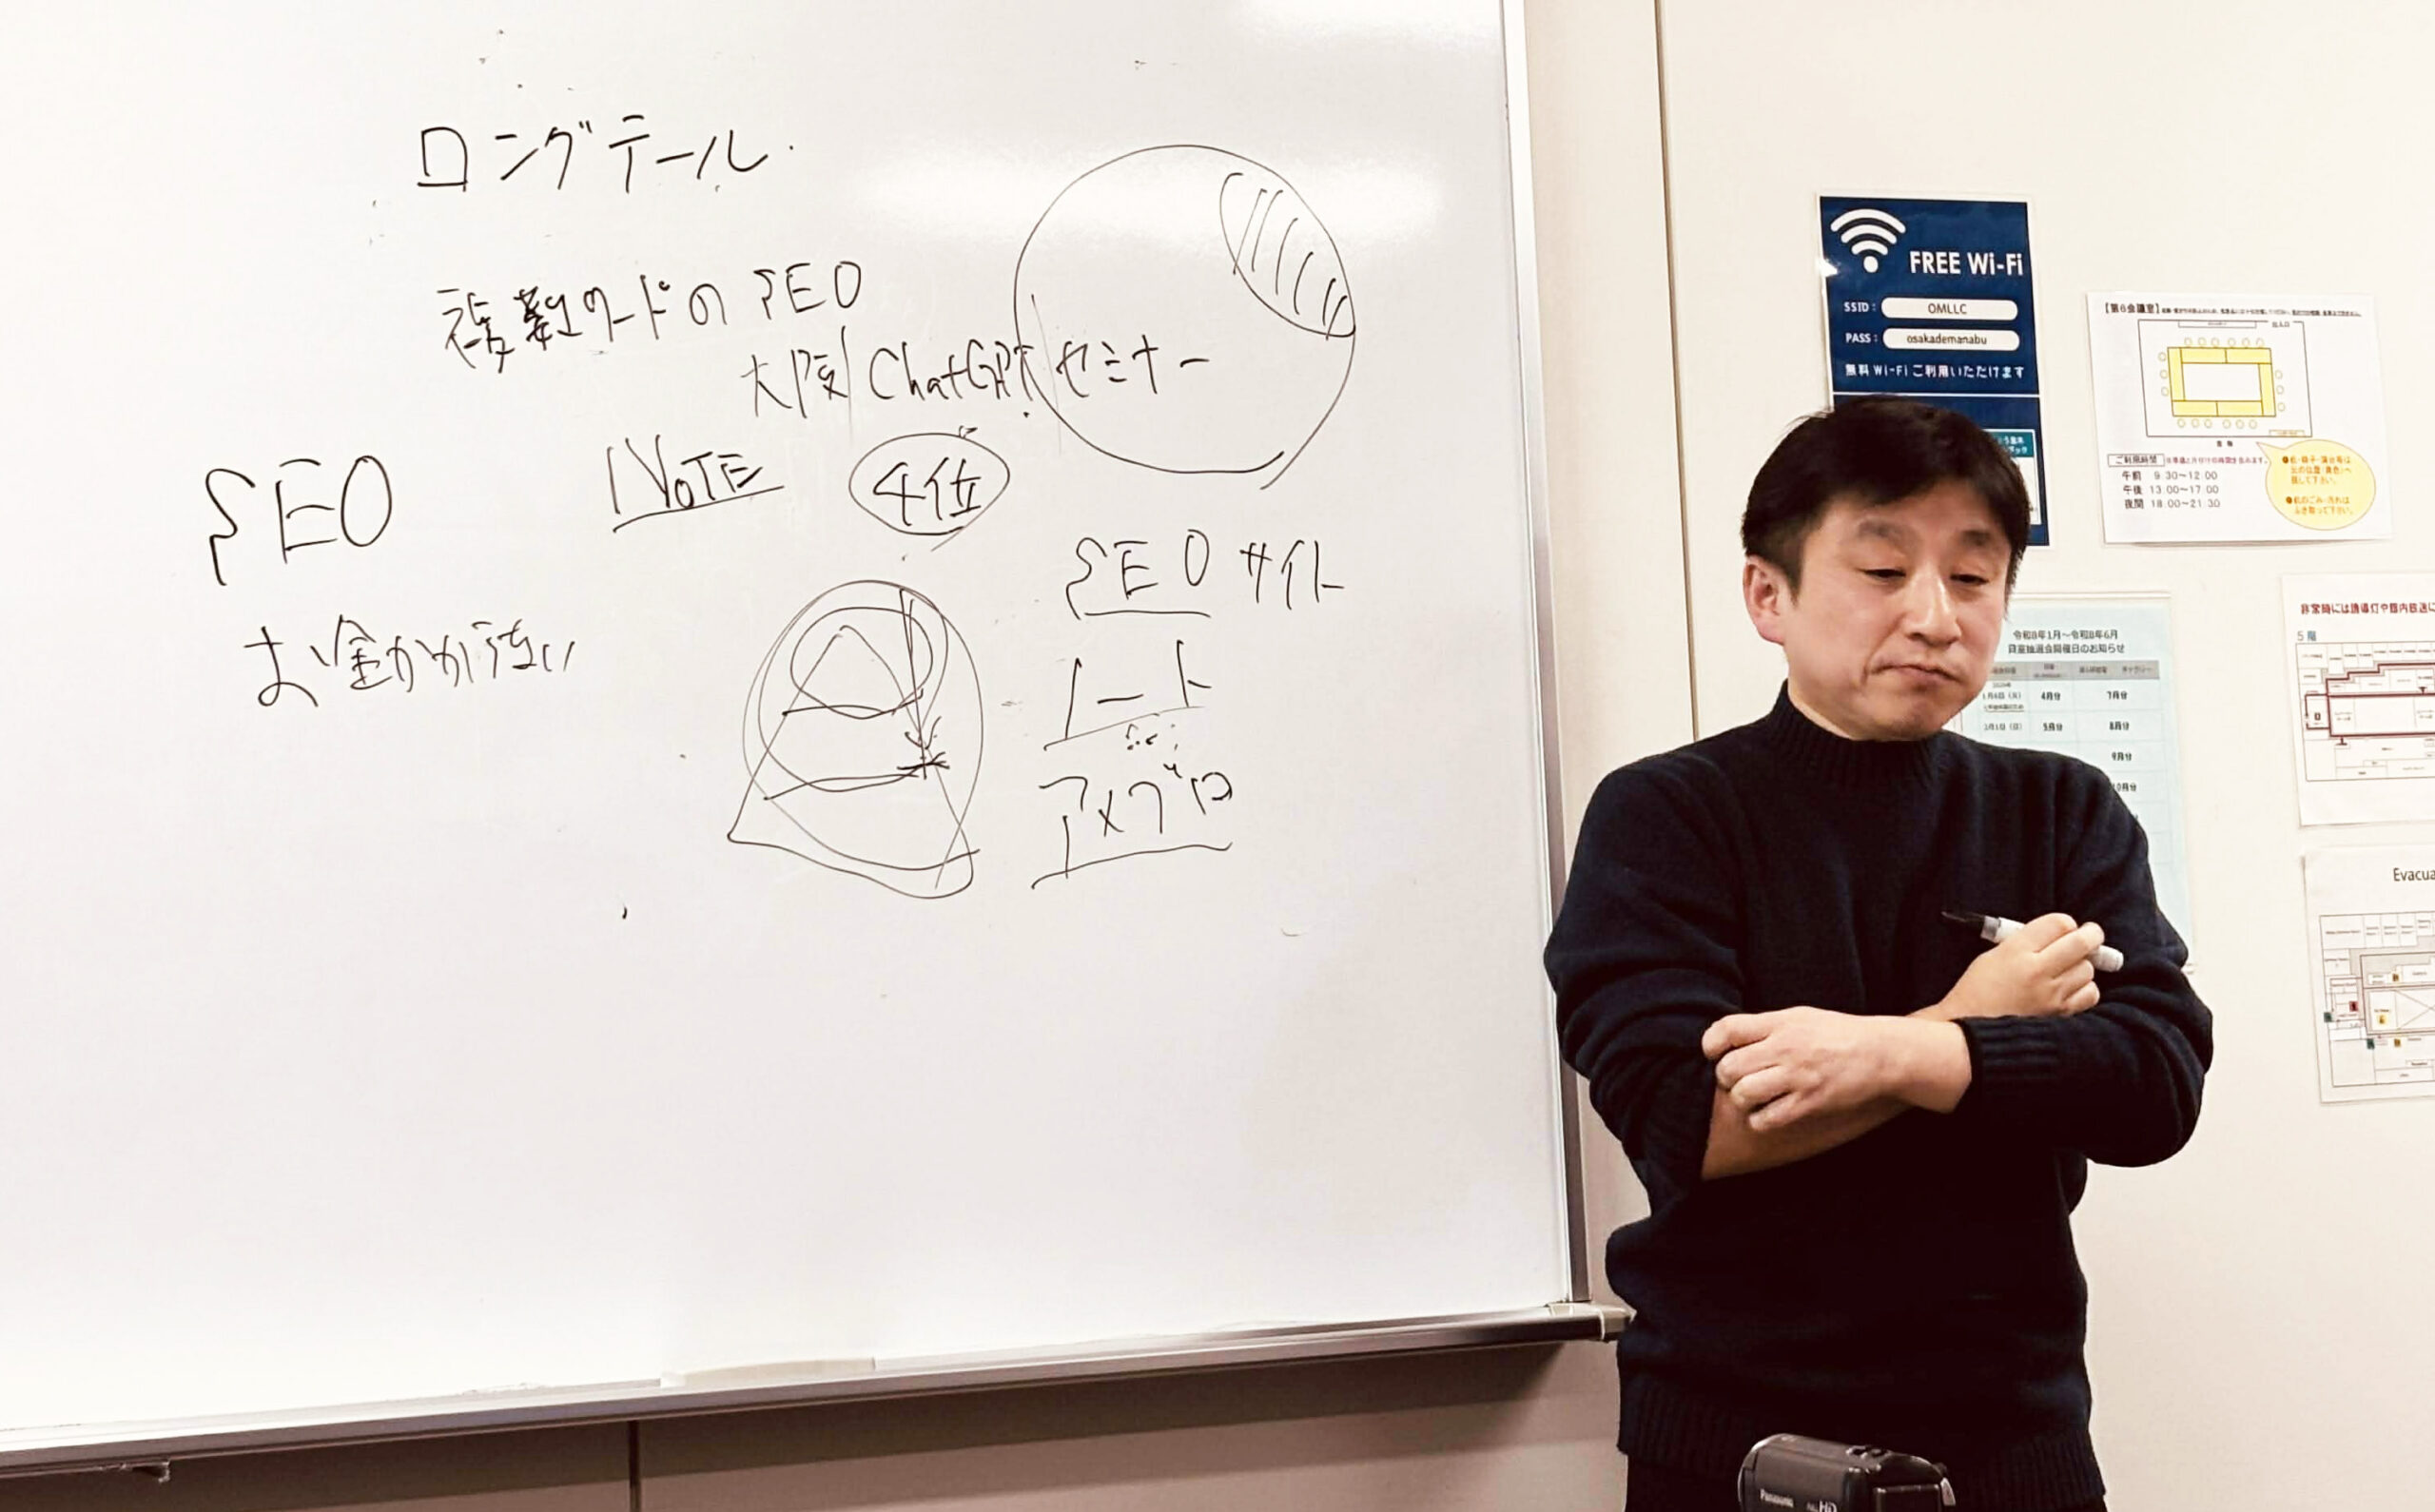 ロングテール
複数ワードのSEO
大阪 ChatGPT セミナー
NOTE
4位
SEO
お金かからない
SEO サイト
ノート
アメブロ
FREE Wi-Fi
SSID: OMLLC
PASS: osakademanabu
無料 Wi-Fi ご利用いただけます
【第6会議室】
ご利用時間
午前 9:30~12:00
午後 13:00~17:00
夜間 18:00~21:30
令和8年1月~令和8年6月
貸室抽選会開催日のお知らせ
4月分 7月分
5月分 8月分
9月分
10月分
非常時には誘導灯や館内放送に
5階
Evacua
Panasonic
HD